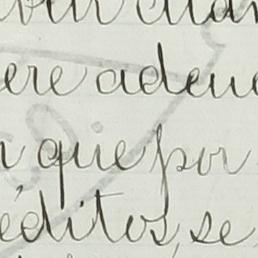 ere adeu
que por
éditos, se